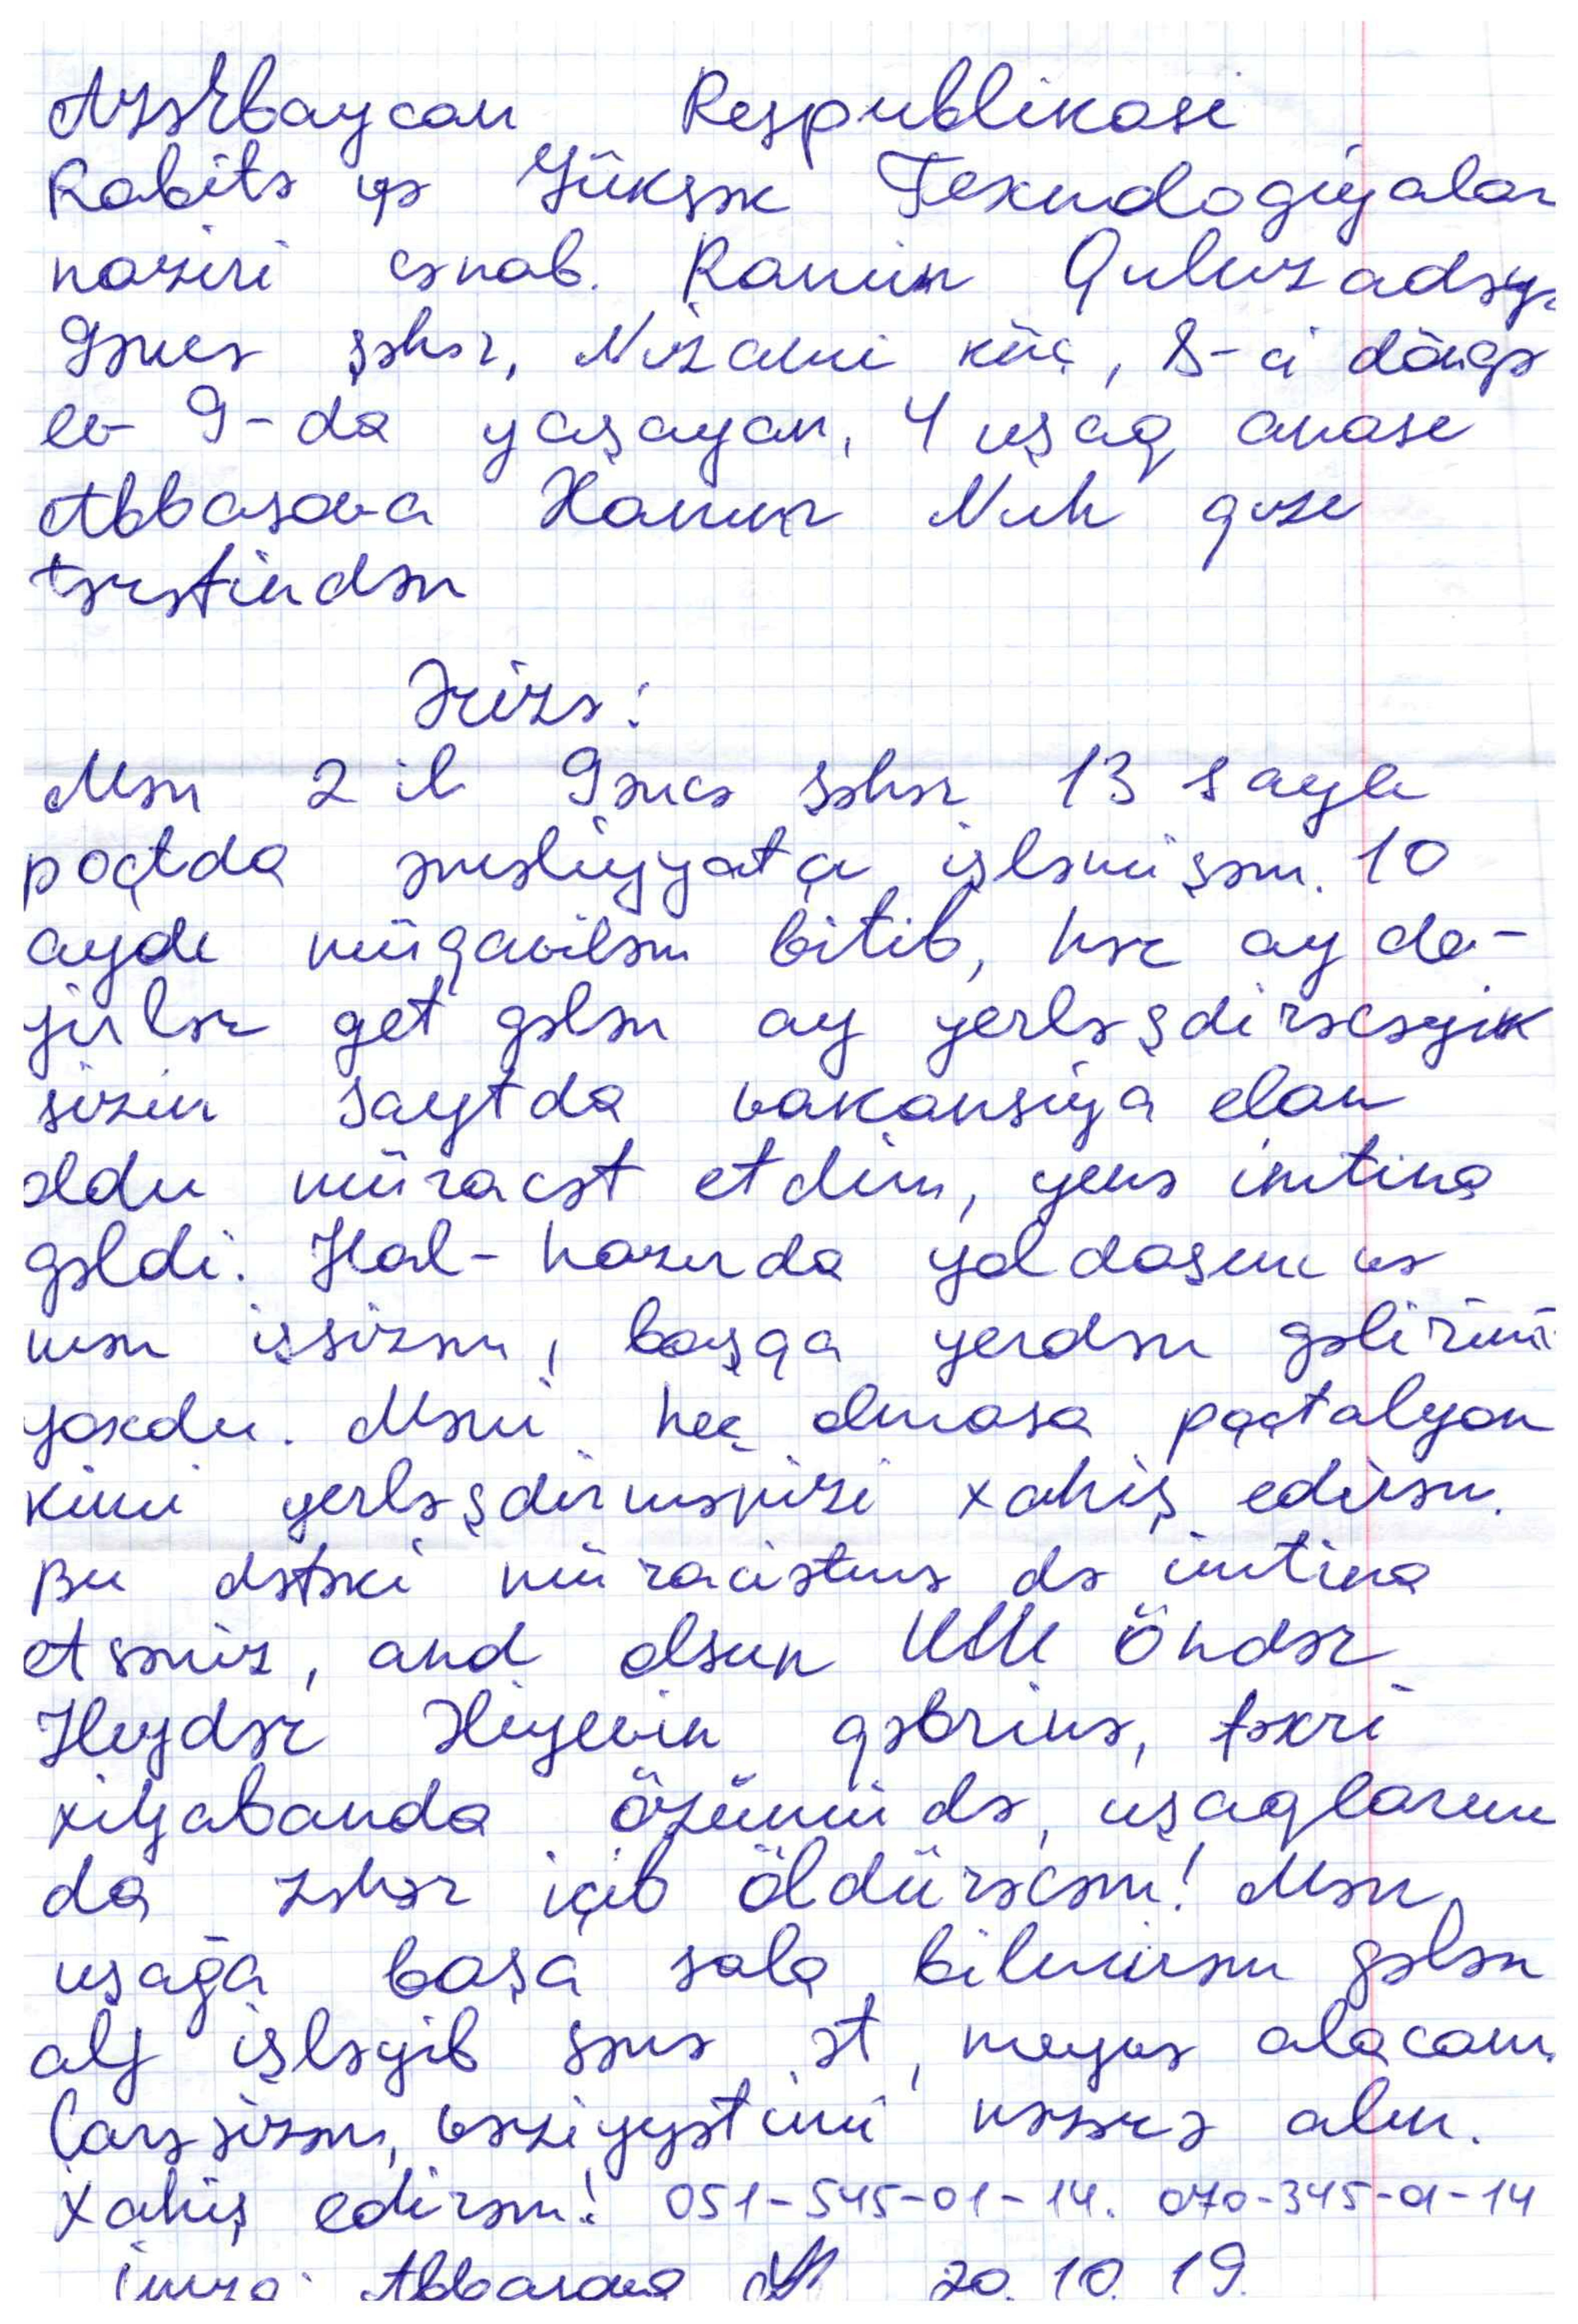 Azərbaycan Respublikası
Rabitə və Yüksək Texnologiyalar
naziri cənab. Ramin Quluzadəyə
Gəncə şəhər, Nizami küç, 8-ci döngə
ev 9-da yaşayan, 4 uşaq anası
Abbasova Xanım Nuh qızı
tərəfindən
Ərizə:
Mən 2 il Gəncə şəhər 13 saylı
poçtda əməliyyatçı işləmişəm. 10
ayda müqaviləm bitib, hər ay de-
yirlər get gələn ay yerləşdirəcəyik
sizin saytda vakansiya elan
oldu müraciət etdim, yenə imtina
gəldi. Hal-hazırda yoldaşım və
mən işsizəm, başqa yerdən gəlirimiz
yoxdu. Məni heç olmasa poçtalyon
kimi yerləşdirməyinizi xahiş edirəm.
Bu dəfəki müraciətimə də imtina
etsəniz, and olsun Ulu Öndər
Heydər Əliyevin qəbrinə, fəxri
xiyabanda özümü də, uşaqlarımı
da zəhər içib öldürəcəm! Mən
uşağa başa sala bilmirəm gələn
ay işləyib sənə ət, meyvə alacam.
Çarəsizəm, vəziyyətimi nəzərə alın.
Xahiş edirəm! 051-545-01-14. 070-345-01-14
imza: Abbasova 20.10.19.